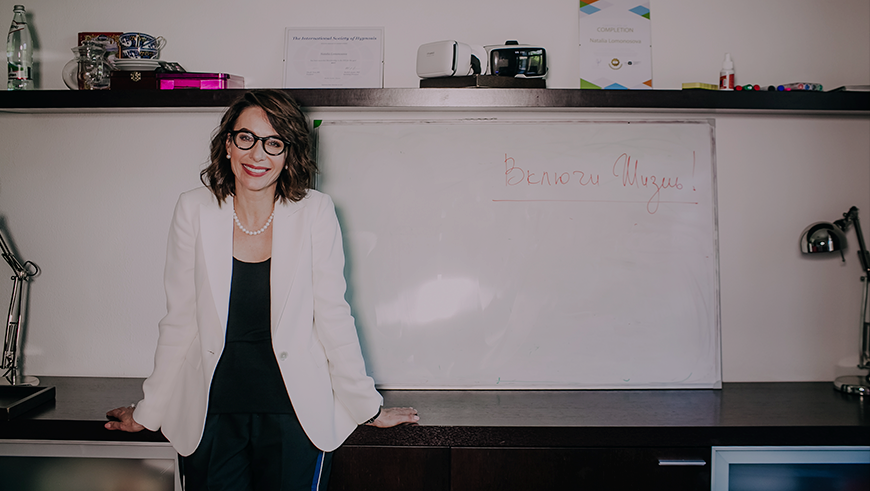 The International Society of Hypnosis
COMPLETION
Включи Жизнь!